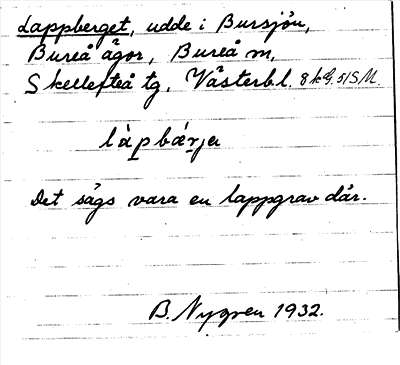 Lappberget, udde i Bursjön,
Bureå ägor, Bureå m,
Skellefteå tg, Västerbl. 8 kG. 51SM.
là̀pbæ̀rja
Det sägs vara en lappgrav där.
B. Nygren 1932.